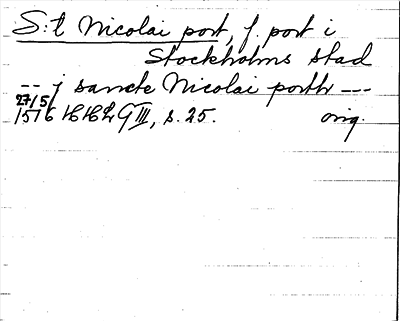 S:t Nicolai port, f. port i
Stockholms stad
-- j sancte Nicolai porthr ---
27/5
1516 HH III, s. 25. orig.